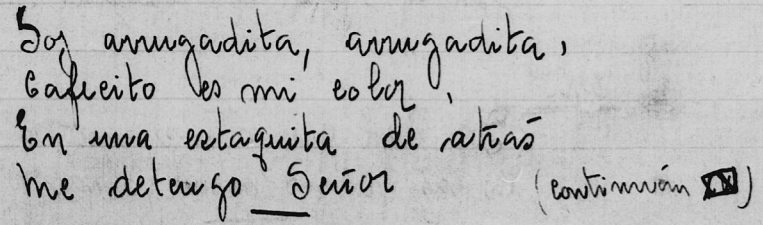 Soy arrugadita, arrugadita,
Cafecito es mi color,
En una estaquita de atras
me detengo Señor (continuán